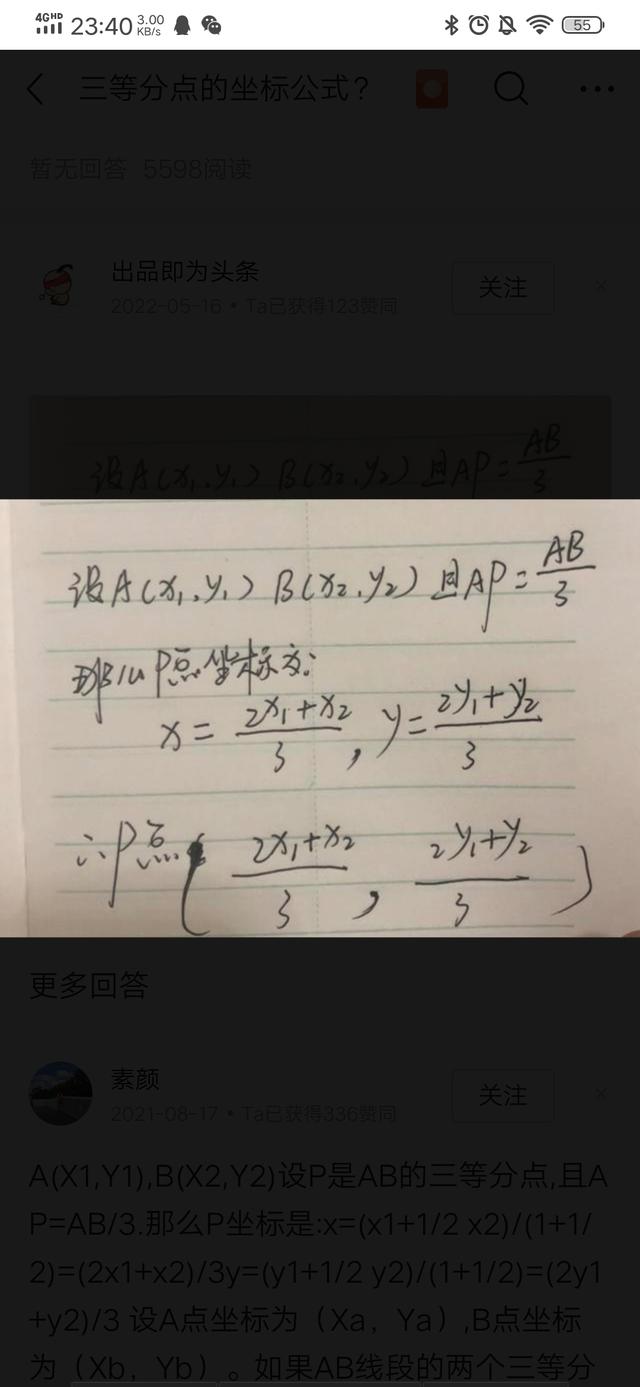 4GHD 23:40 3.00 KB/s 55
三等分点的坐标公式？
暂无回答 5598阅读
出品即为头条
关注
2022-05-16 • Ta已获得123赞同
设A(x₁,y₁) B(x₂,y₂) 且AP=AB/3
设A(x₁,y₁) B(x₂,y₂) 且AP=AB/3
那么P点坐标为:
x=(2x₁+x₂)/3, y=(2y₁+y₂)/3
∴P点((2x₁+x₂)/3, (2y₁+y₂)/3)
更多回答
素颜
关注
2021-08-17 • Ta已获得336赞同
A(X1,Y1),B(X2,Y2)设P是AB的三等分点,且A
P=AB/3.那么P坐标是:x=(x1+1/2 x2)/(1+1/
2)=(2x1+x2)/3y=(y1+1/2 y2)/(1+1/2)=(2y1
+y2)/3 设A点坐标为（Xa，Ya）,B点坐标
为（Xb，Yb）。如果AB线段的两个三等分